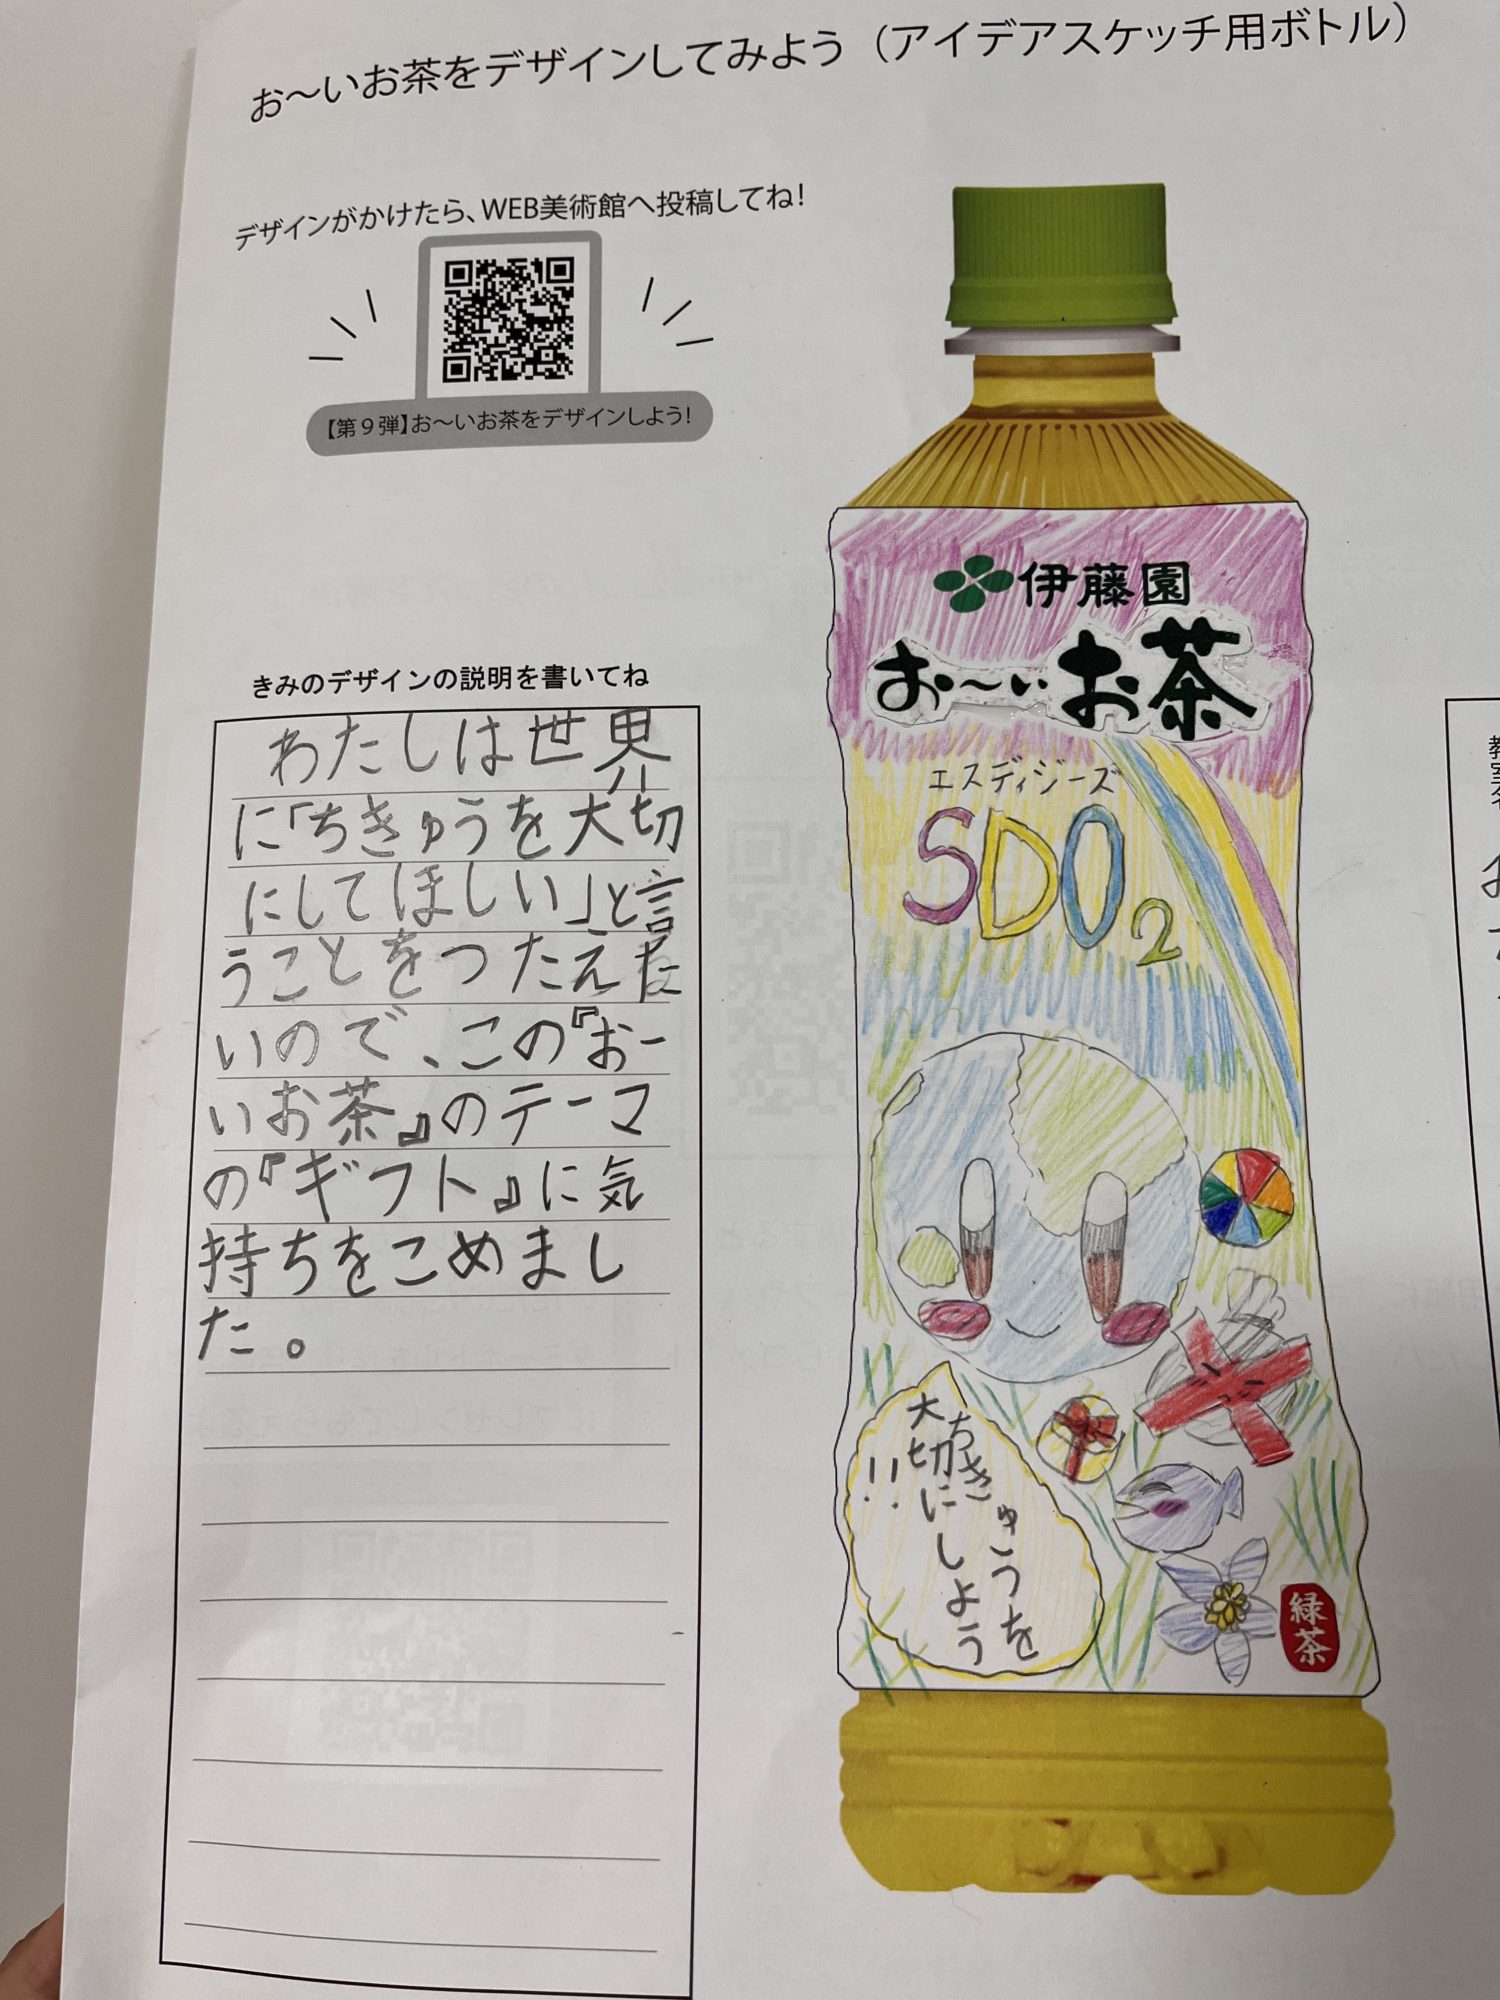 お〜いお茶をデザインしてみよう（アイデアスケッチ用ボトル）
デザインがかけたら、WEB美術館へ投稿してね！
【第９弾】お〜いお茶をデザインしよう！
きみのデザインの説明を書いてね
わたしは世界
に「ちきゅうを大切
にしてほしい」と言
うことをつたえた
いので、この『おー
いお茶』のテーマ
の『ギフト』に気
持ちをこめまし
た。
伊藤園
お〜いお茶
エスディジーズ
SDO2
ちきゅうを
大切にしよう
!!
緑茶
教室名